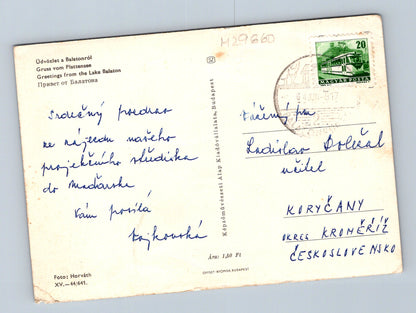 Üdvözlet a Balatonról
Gruss vom Plattensee
Greetings from the Lake Balaton
Привет от Балатона
M29860
20
MAGYAR POSTA
Srdečný pozdrav
ze zájezdu našeho
projekčního střediska
do Maďarska
Vám posílá
Képzőművészeti Alap Kiadóvállalata, Budapest
Vážený pan
Ladislav Doležal
učitel
KORYČANY
OKRES KROMĚŘÍŽ
ČESKOSLOVENSKO
Ára: 1,50 Ft
Foto: Horváth
XV.—44/641.
OFFSET NYOMDA BUDAPEST